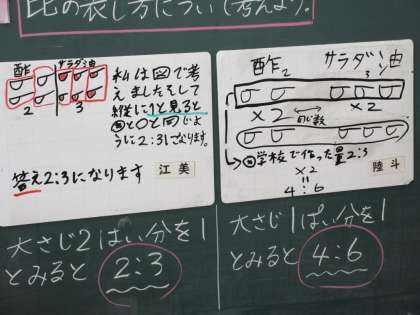 比の表し方について考えよう。
酢 サラダ油
2 3
私は図で考
えました。そして
縦に1と見ると
うに2:3になります。
答え2:3になります
江美
酢2 サラダ油3
×2 ×2
同じ数
学校で作った量2:3
×2
4:6
陸斗
大さじ2はい分を1
とみると 2:3
大さじ1ぱい分を1
とみると 4:6